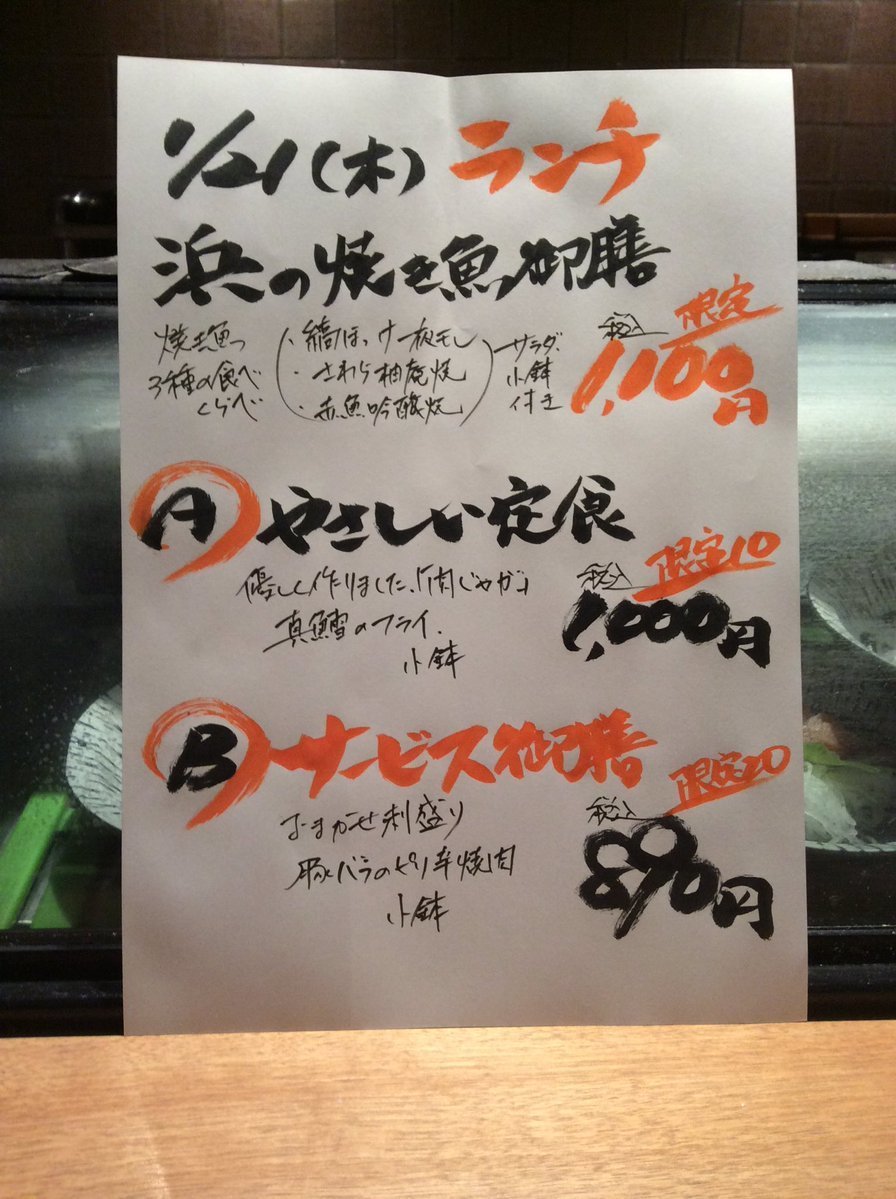 1/21(木) ランチ
浜の焼き魚御膳
限定
税込
1,100円
焼き魚
3種の食べ
くらべ
・縞ほっけ一夜干し
・さわら柚庵焼
・赤魚吟醸焼
サラダ、
小鉢
付き
A やさしい定食
限定10
税込
1,000円
優しく作りました、「肉じゃが」
真鱈のフライ、
小鉢
B サービス御膳
限定20
税込
890円
おまかせ刺盛り
豚バラのピリ辛焼肉
小鉢